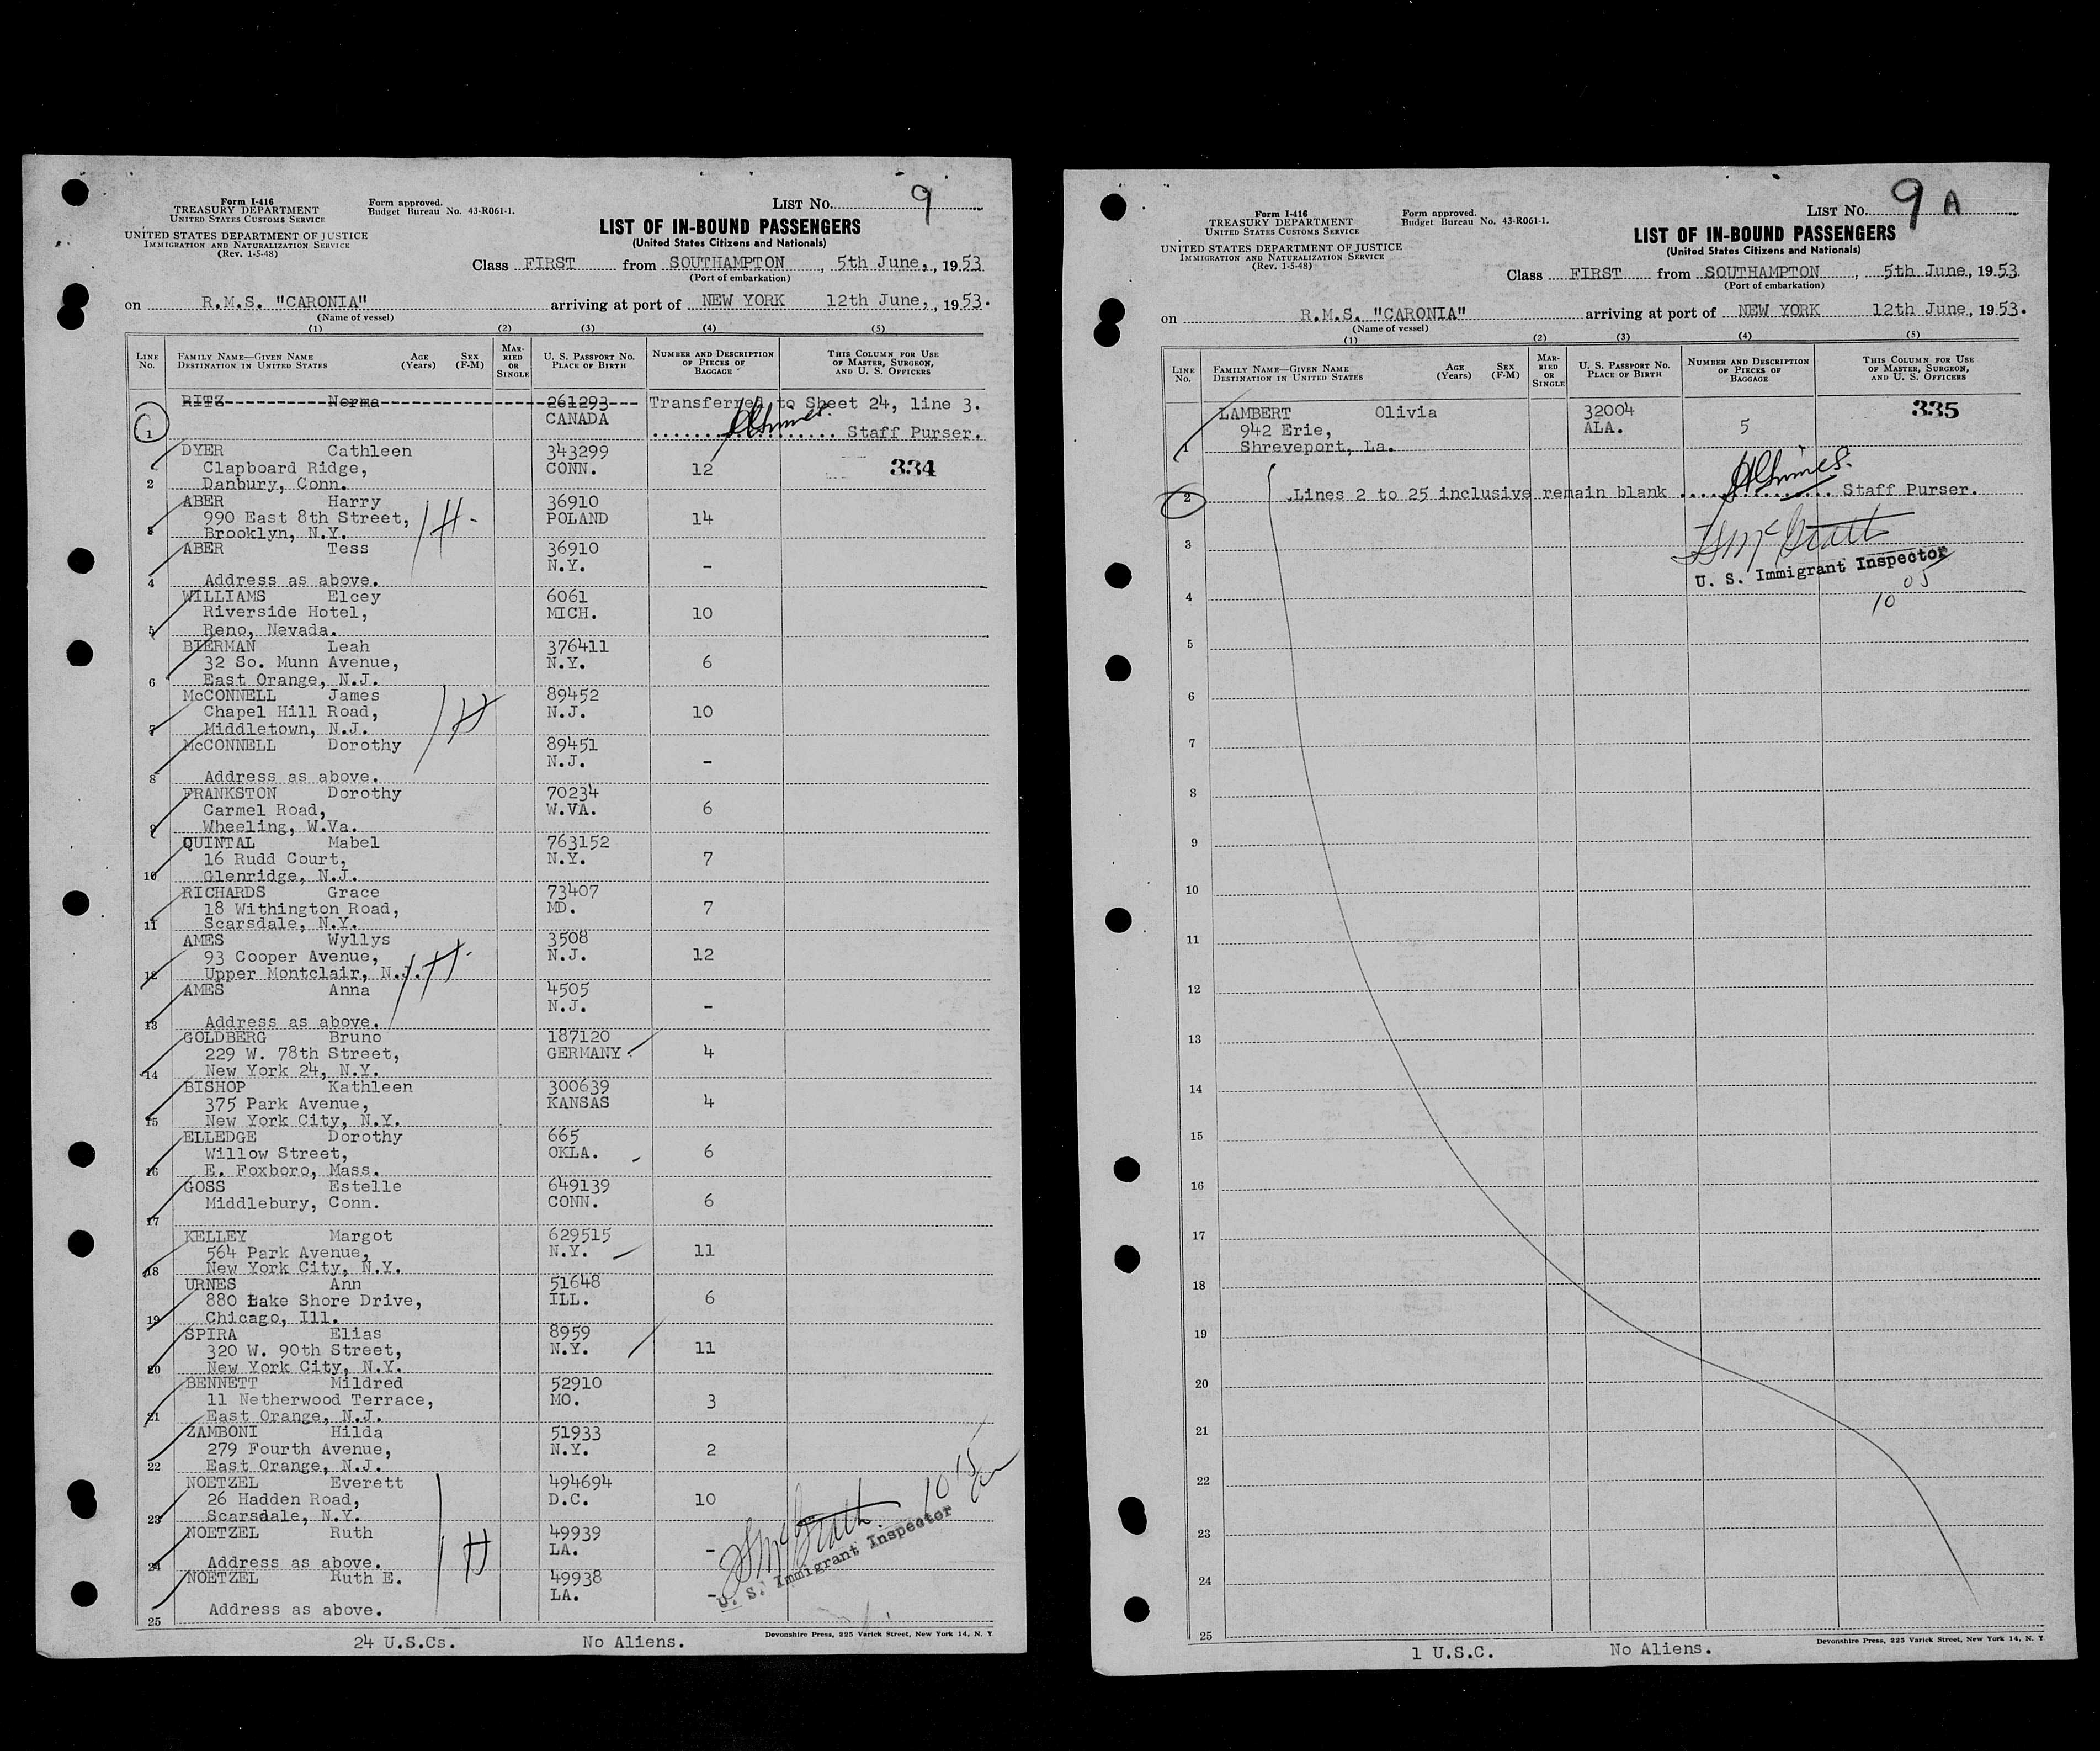 Form I-416
TREASURY DEPARTMENT
UNITED STATES CUSTOMS SERVICE
UNITED STATES DEPARTMENT OF JUSTICE
IMMIGRATION AND NATURALIZATION SERVICE
(Rev. 1-5-48)
Form approved.
Budget Bureau No. 43-R061-1.
LIST No. 9
LIST OF IN-BOUND PASSENGERS
(United States Citizens and Nationals)
Class FIRST from SOUTHAMPTON, 5th June, 1953
(Port of embarkation)
on R.M.S. "CARONIA" arriving at port of NEW YORK 12th June, 1953.
(Name of vessel)
(1) (2) (3) (4) (5)
LINE No. FAMILY NAME—GIVEN NAME DESTINATION IN UNITED STATES AGE (Years) SEX (F-M) MARRIED OR SINGLE U. S. PASSPORT NO. PLACE OF BIRTH NUMBER AND DESCRIPTION OF PIECES OF BAGGAGE THIS COLUMN FOR USE OF MASTER, SURGEON, AND U. S. OFFICERS
RITZ Norma 261293 Transferred to Sheet 24, line 3.
CANADA
1 Staff Purser.
DYER Cathleen 343299
Clapboard Ridge, CONN. 12 334
2 Danbury, Conn.
ABER Harry 36910
990 East 8th Street, POLAND 14
3 Brooklyn, N.Y.
H.
ABER Tess 36910
N.Y. -
4 Address as above.
WILLIAMS Elcey 6061
Riverside Hotel, MICH. 10
5 Reno, Nevada.
BIERMAN Leah 376411
32 So. Munn Avenue, N.Y. 6
6 East Orange, N.J.
McCONNELL James 89452
Chapel Hill Road, N.J. 10
7 Middletown, N.J.
H
McCONNELL Dorothy 89451
N.J. -
8 Address as above.
FRANKSTON Dorothy 70234
Carmel Road, W.VA. 6
9 Wheeling, W.Va.
QUINTAL Mabel 763152
16 Rudd Court, N.Y. 7
10 Glenridge, N.J.
RICHARDS Grace 73407
18 Withington Road, MD. 7
11 Scarsdale, N.Y.
AMES Wyllys 3508
93 Cooper Avenue, N.J. 12
12 Upper Montclair, N.J.
H.
AMES Anna 4505
N.J. -
13 Address as above.
GOLDBERG Bruno 187120
229 W. 78th Street, GERMANY 4
14 New York 24, N.Y.
BISHOP Kathleen 300639
375 Park Avenue, KANSAS 4
15 New York City, N.Y.
ELLEDGE Dorothy 665
Willow Street, OKLA. 6
16 E. Foxboro, Mass.
GOSS Estelle 649139
Middlebury, Conn. CONN. 6
17
KELLEY Margot 629515
564 Park Avenue, N.Y. 11
18 New York City, N.Y.
URNES Ann 51648
880 Lake Shore Drive, ILL. 6
19 Chicago, Ill.
SPIRA Elias 8959
320 W. 90th Street, N.Y. 11
20 New York City, N.Y.
BENNETT Mildred 52910
11 Netherwood Terrace, MO. 3
21 East Orange, N.J.
ZAMBONI Hilda 51933
279 Fourth Avenue, N.Y. 2
22 East Orange, N.J.
NOETZEL Everett 494694
26 Hadden Road, D.C. 10
23 Scarsdale, N.Y.
NOETZEL Ruth 49939
LA. -
24 Address as above.
H
NOETZEL Ruth E. 49938
LA. -
Address as above.
25
10 15
U. S. Immigrant Inspector
24 U.S.Cs. No Aliens.
Devonshire Press, 225 Varick Street, New York 14, N. Y.
Form I-416
TREASURY DEPARTMENT
UNITED STATES CUSTOMS SERVICE
UNITED STATES DEPARTMENT OF JUSTICE
IMMIGRATION AND NATURALIZATION SERVICE
(Rev. 1-5-48)
Form approved.
Budget Bureau No. 43-R061-1.
LIST No. 9 A
LIST OF IN-BOUND PASSENGERS
(United States Citizens and Nationals)
Class FIRST from SOUTHAMPTON, 5th June, 1953.
(Port of embarkation)
on R.M.S. "CARONIA" arriving at port of NEW YORK 12th June, 1953.
(Name of vessel)
(1) (2) (3) (4) (5)
LINE No. FAMILY NAME—GIVEN NAME DESTINATION IN UNITED STATES AGE (Years) SEX (F-M) MARRIED OR SINGLE U. S. PASSPORT NO. PLACE OF BIRTH NUMBER AND DESCRIPTION OF PIECES OF BAGGAGE THIS COLUMN FOR USE OF MASTER, SURGEON, AND U. S. OFFICERS
LAMBERT Olivia 32004 335
942 Erie, ALA. 5
1 Shreveport, La.
2 Lines 2 to 25 inclusive remain blank Staff Purser.
3
U. S. Immigrant Inspector
10 05
4
5
6
7
8
9
10
11
12
13
14
15
16
17
18
19
20
21
22
23
24
25
1 U.S.C. No Aliens.
Devonshire Press, 225 Varick Street, New York 14, N. Y